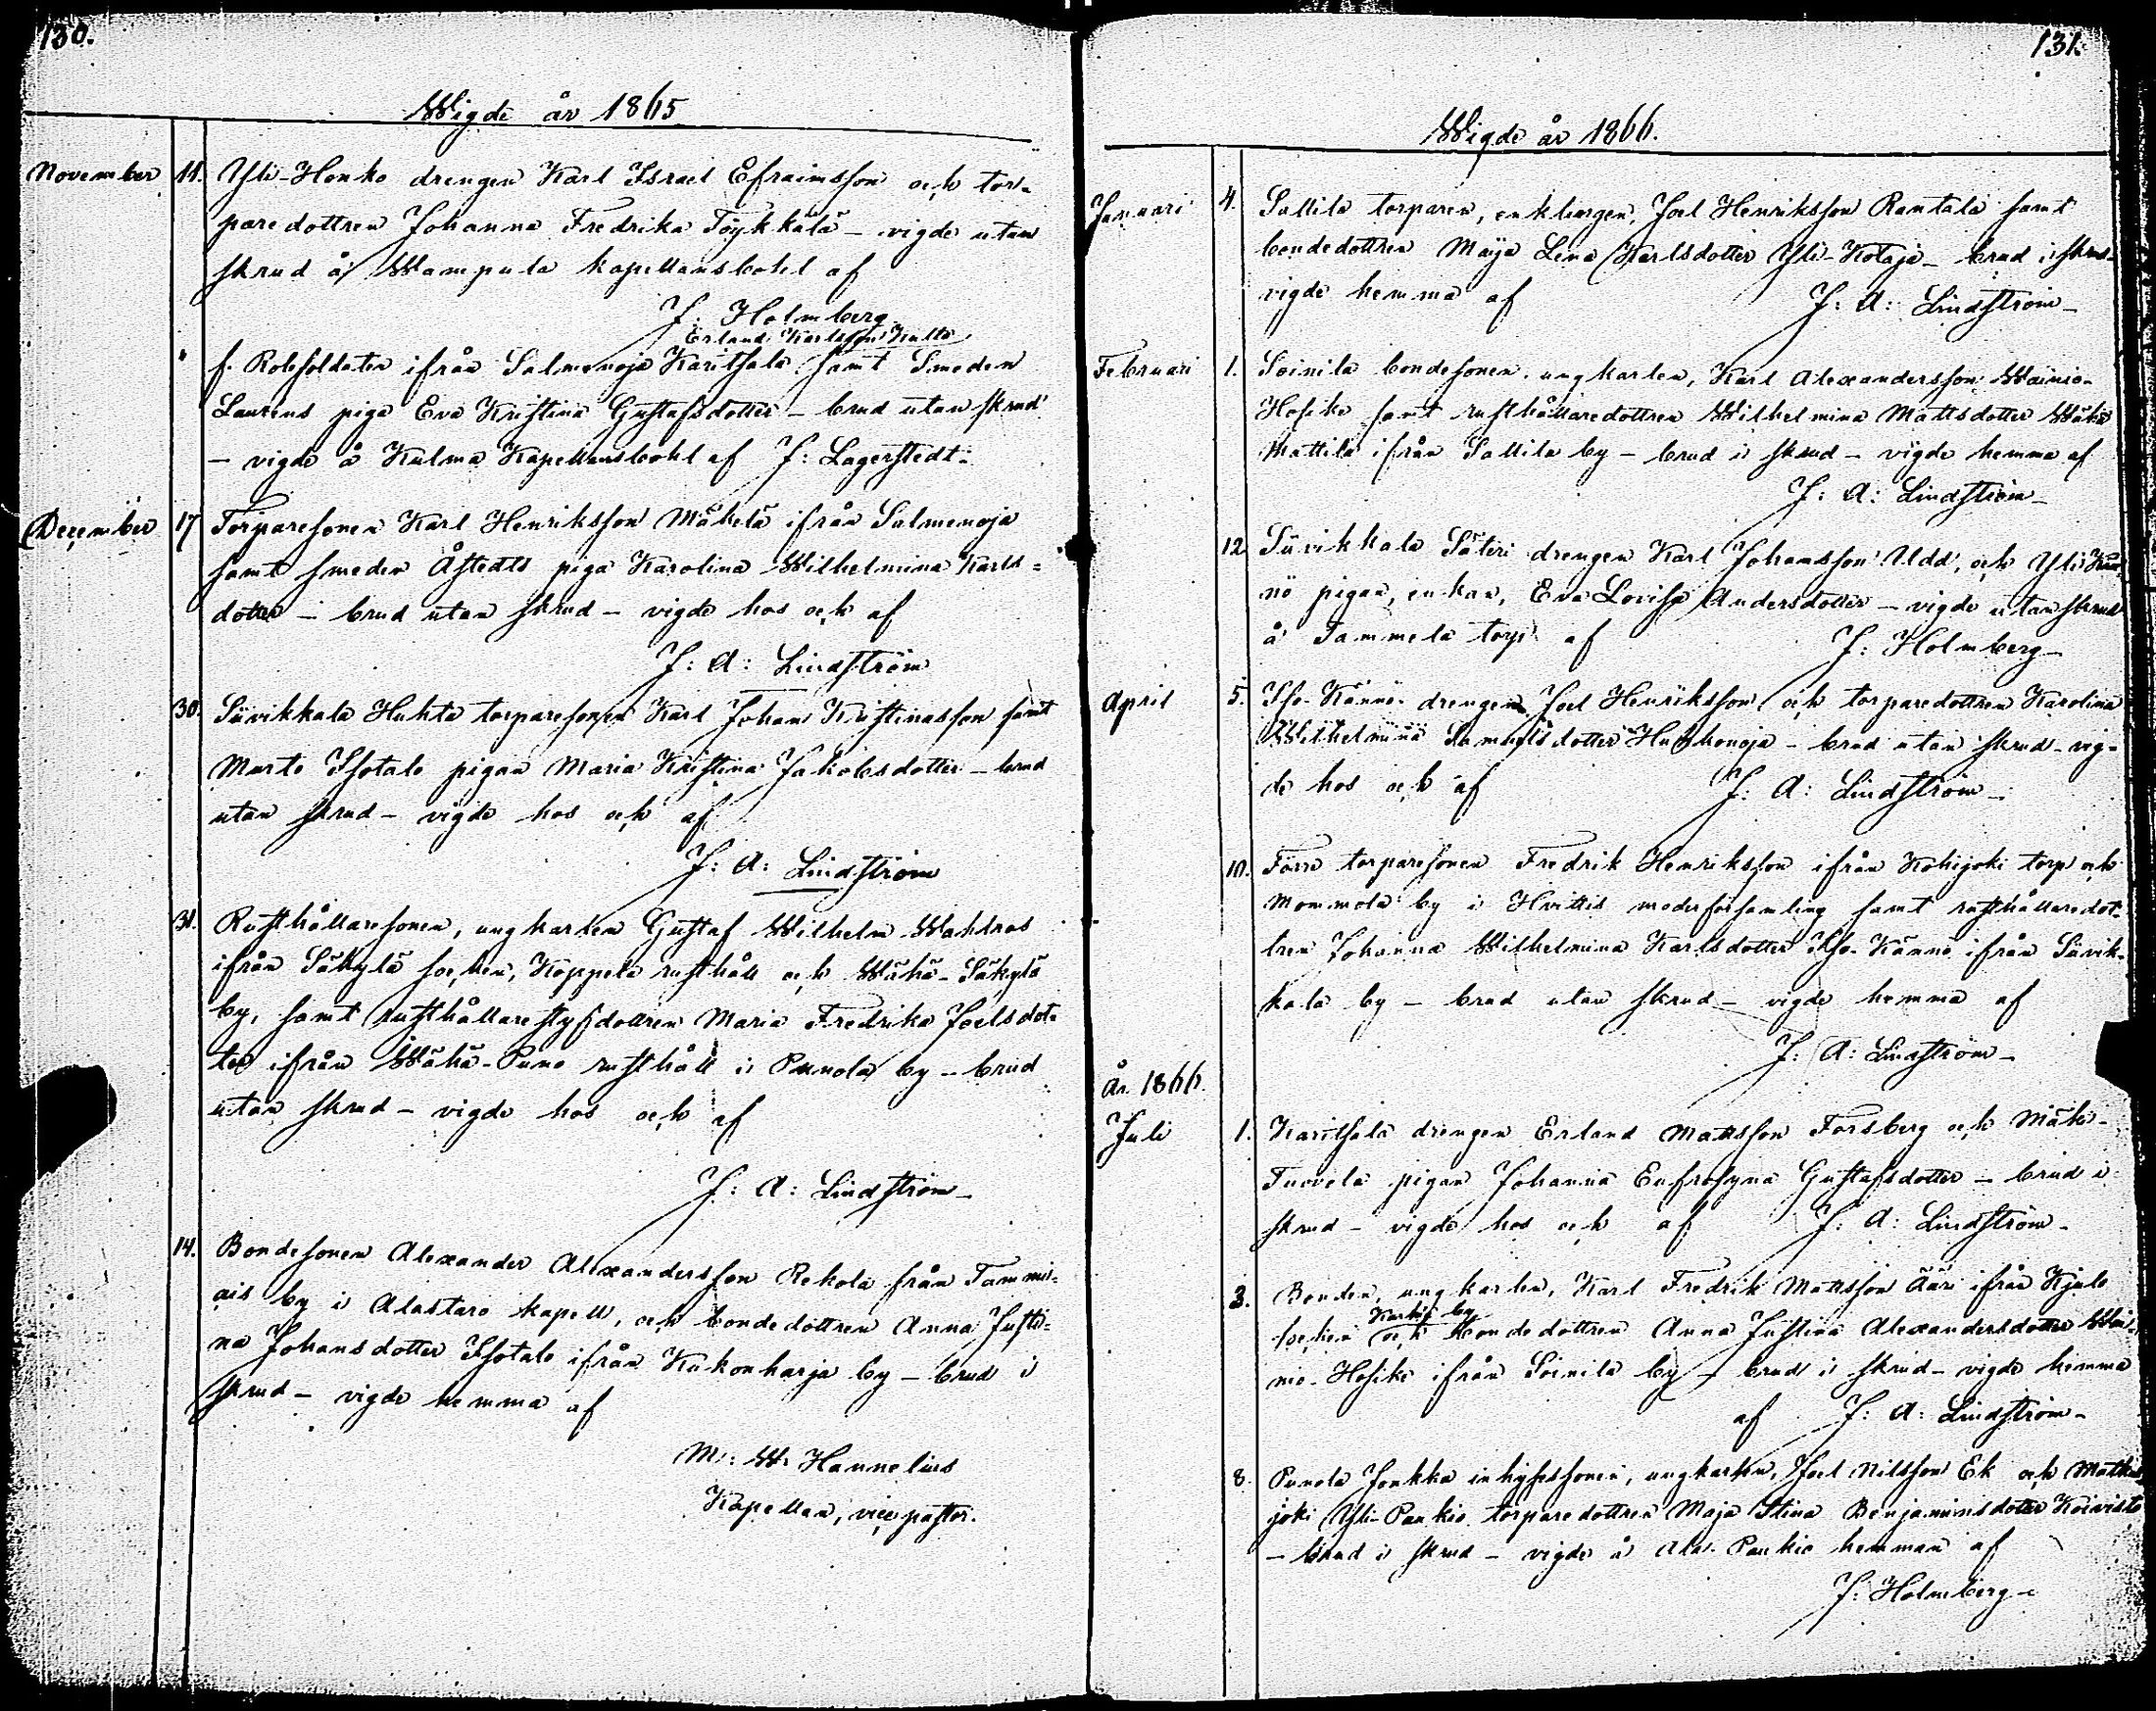 130.
Wigde år 1865
November 11. Yli-Honko drengen Karl Israel Efraimsson och tor-
paredottren Johanna Fredrika Töykkälä - vigde utan
skrud å Wampula kapellansbohl af
J. Holmberg
Erland Karlsson Kulto
" f. Rotesoldaten ifrån Salmenoja Karitsala samt Smeden
Laurens piga Eva Kristina Gustafsdotter - brud utan skrud
- vigde å Kulma Kapellansbohl af J: Lagerstedt.
December 17 Torparesonen Karl Henriksson Mäkelä ifrån Salmenoja
samt smeden Åstedts piga Karolina Wilhelmina Karls=
dotter - brud utan skrud - vigde hos och af
J: A: Lindström
30. Sävikkala Huhta torparesonen Karl Johan Kristinasson samt
Murto Isotalo pigan Maria Kristina Jakobsdotter - brud
utan skrud - vigde hos och af
J: A: Lindström
31. Rusthållaresonen, ungkarlen Gustaf Wilhelm Wahlros
ifrån Säkylä socken, Köppelä rusthåll och Wähä-Säkylä
by, samt rusthållarestyfdottren Maria Fredrika Joelsdot-
ter ifrån Wähä-Puno rusthåll i Punola by - brud
utan skrud - vigde hos och af
J: A: Lindström -
14. Bondesonen Alexander Alexandersson Rekola från Tammi-
ais by i Alastaro kapell, och bondedottren Anna Justi=
na Johansdotter Isotalo ifrån Kukonharja by - brud i
skrud - vigde hemma af
M: W: Hannelius
Kapellan, vice pastor.
131.
Wigde år 1866.
Januari 4. Sallila torparen, enklingen, Joel Henriksson Rantala samt
bondedottren Maja Lena Karlsdotter Yli-Kotaja - brud i skrud-
vigde hemma af J: A: Lindström -
Februari 1. Soinila bondesonen, ungkarlen, Karl Alexandersson Wäinio-
Hosike samt rusthållaredottren Wilhelmina Mattsdotter Wähä
Mattila ifrån Sallila by - brud i skrud - vigde hemma af
J: A: Lindström -
12. Sävikkala Säteri drengen Karl Johansson Udd, och Yli Kän-
nö pigan, enkan, Eva Lovisa Andersdotter - vigde utan skrud
å Tammela torp af J: Holmberg -
April 5. Iso-Kännö drengen Joel Henriksson och torparedottren Karolina
Wilhelmina Samuelsdotter Huhkonoja - brud utan skrud - vig-
de hos och af J: A: Lindström -
10. Förre torparesonen Fredrik Henriksson ifrån Kohijoki torp och
Mommola by i Hvittis moderförsamling samt rusthållaredot-
tren Johanna Wilhelmina Karlsdotter Iso-Kännö ifrån Sävik-
kala by - brud utan skrud - vigde hemma af
J: A: Lindström -
År 1866.
Juli 1. Karitsala drengen Erland Mattsson Forsberg och Mäki-
Tuovola pigan Johanna Eufrosyna Gustafsdotter - brud i
skrud - vigde hos och af J: A: Lindström -
3. Bonden, ungkarlen, Karl Fredrik Mattsson Ääri ifrån Kjulo
Karhia by
socken och Bondedottren Anna Justina Alexandersdotter Wäi-
niö-Hosike ifrån Soinila by - brud i skrud - vigde hemma
af J: A: Lindström -
8. Punola Jonkka inhysessonen, ungkarlen, Joel Nilsson Ek och Matku-
joki Yli-Paukio torparedottren Maja Stina Benjaminsdotter Koivisto
- brud i skrud - vigde å Ala-Paukio hemman af
J: Holmberg -